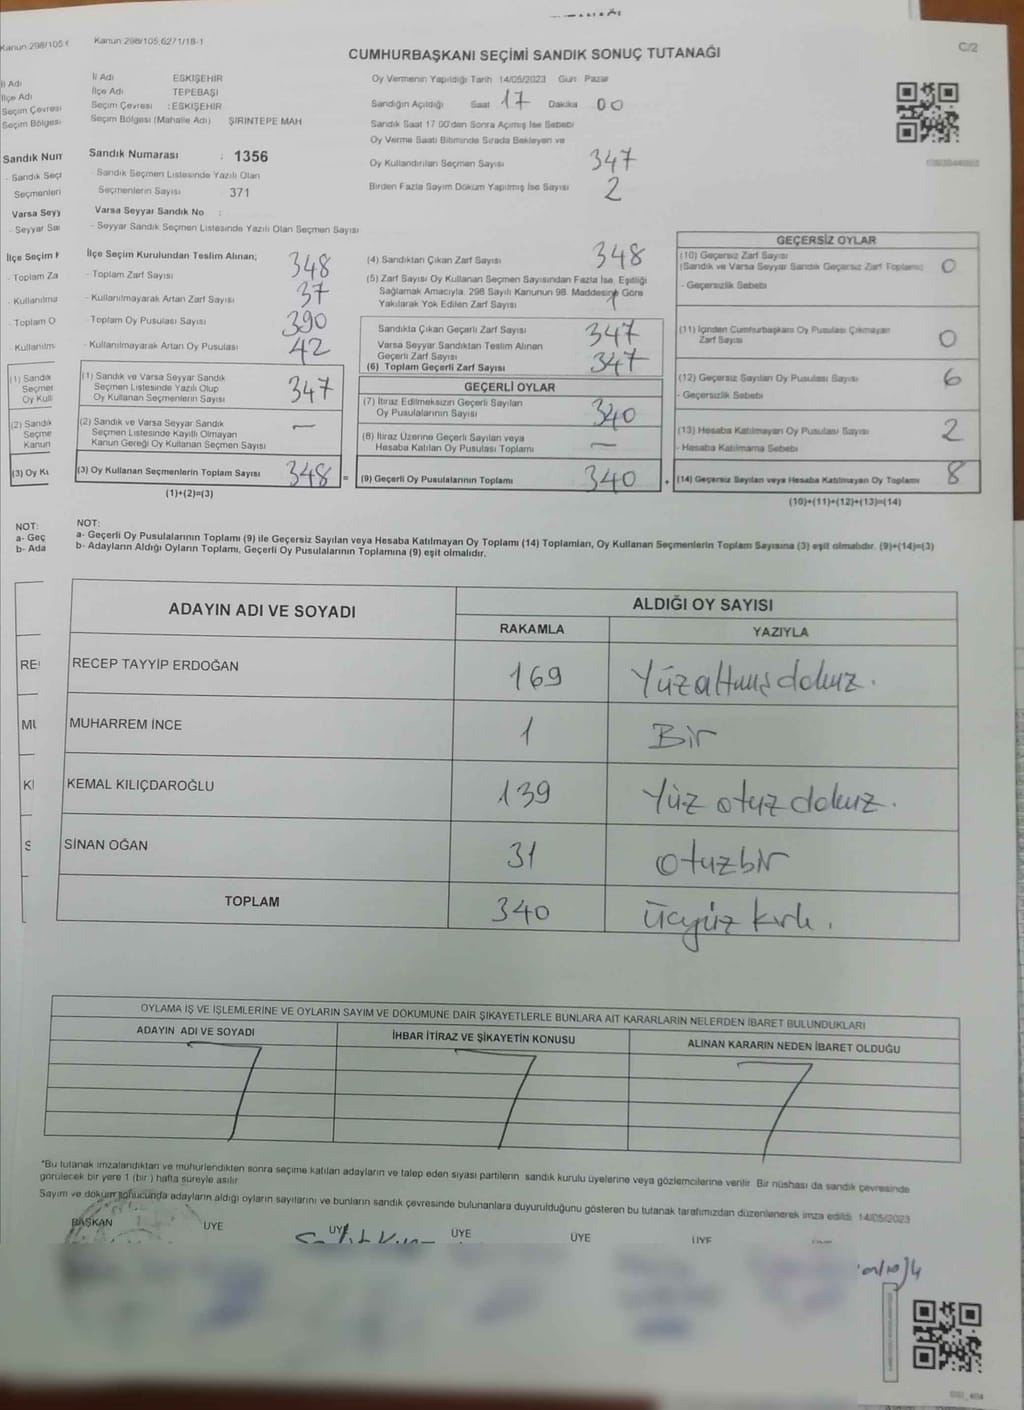 Kanun:298/105.6271/18-1
C/2
CUMHURBAŞKANI SEÇİMİ SANDIK SONUÇ TUTANAĞI
İl Adı ESKİŞEHİR
İlçe Adı TEPEBAŞI
Seçim Çevresi : ESKİŞEHİR
Seçim Bölgesi (Mahalle Adı) ŞİRİNTEPE MAH
Sandık Numarası : 1356
- Sandık Seçmen Listesinde Yazılı Olan
Seçmenlerin Sayısı 371
Varsa Seyyar Sandık No :
- Seyyar Sandık Seçmen Listesinde Yazılı Olan Seçmen Sayısı
Oy Vermenin Yapıldığı Tarih 14/05/2023 Gün Pazar
Sandığın Açıldığı Saat 17 Dakika 00
Sandık Saat 17:00'den Sonra Açımış İse Sebebi
Oy Verme Saati Bitiminde Sırada Bekleyen ve
Oy Kullandırılan Seçmen Sayısı 347
Birden Fazla Sayım Döküm Yapılmış İse Sayısı 2
İlçe Seçim Kurulundan Teslim Alınan;
- Toplam Zarf Sayısı 348
- Kullanılmayarak Artan Zarf Sayısı 37
- Toplam Oy Pusulası Sayısı 390
- Kullanılmayarak Artan Oy Pusulası 42
(1) Sandık ve Varsa Seyyar Sandık
Seçmen Listesinde Yazılı Olup
Oy Kullanan Seçmenlerin Sayısı 347
(2) Sandık ve Varsa Seyyar Sandık
Seçmen Listesinde Kayıtlı Olmayan
Kanun Gereği Oy Kullanan Seçmen Sayısı —
(3) Oy Kullanan Seçmenlerin Toplam Sayısı 348 =
(1)+(2)=(3)
(4) Sandıktan Çıkan Zarf Sayısı 348
(5) Zarf Sayısı Oy Kullanan Seçmen Sayısından Fazla İse, Eşitliği
Sağlamak Amacıyla, 298 Sayılı Kanunun 98. Maddesine Göre
Yakılarak Yok Edilen Zarf Sayısı 1
Sandıkta Çıkan Geçerli Zarf Sayısı 347
Varsa Seyyar Sandıktan Teslim Alınan
Geçerli Zarf Sayısı
(6) Toplam Geçerli Zarf Sayısı 347
GEÇERLİ OYLAR
(7) İtiraz Edilmeksizin Geçerli Sayılan
Oy Pusulalarının Sayısı 340
(8) İtiraz Üzerine Geçerli Sayılan veya
Hesaba Katılan Oy Pusulası Toplamı —
(9) Geçerli Oy Pusulalarının Toplamı 340 +
GEÇERSİZ OYLAR
(10) Geçersiz Zarf Sayısı
(Sandık ve Varsa Seyyar Sandık Geçersiz Zarf Toplamı) 0
- Geçersizlik Sebebi
(11) İçinden Cumhurbaşkanı Oy Pusulası Çıkmayan
Zarf Sayısı 0
(12) Geçersiz Sayılan Oy Pusulası Sayısı 6
- Geçersizlik Sebebi
(13) Hesaba Katılmayan Oy Pusulası Sayısı 2
- Hesaba Katılmama Sebebi
(14) Geçersiz Sayılan veya Hesaba Katılmayan Oy Toplamı 8
(10)+(11)+(12)+(13)=(14)
NOT:
a- Geçerli Oy Pusulalarının Toplamı (9) ile Geçersiz Sayılan veya Hesaba Katılmayan Oy Toplamı (14) Toplamları, Oy Kullanan Seçmenlerin Toplam Sayısına (3) eşit olmalıdır. (9)+(14)=(3)
b- Adayların Aldığı Oyların Toplamı, Geçerli Oy Pusulalarının Toplamına (9) eşit olmalıdır.
ADAYIN ADI VE SOYADI
ALDIĞI OY SAYISI
RAKAMLA YAZIYLA
RECEP TAYYİP ERDOĞAN 169 Yüzaltmışdokuz.
MUHARREM İNCE 1 Bir
KEMAL KILIÇDAROĞLU 139 Yüz otuz dokuz.
SİNAN OĞAN 31 otuzbir
TOPLAM 340 üçyüz kırk.
OYLAMA İŞ VE İŞLEMLERİNE VE OYLARIN SAYIM VE DÖKÜMÜNE DAİR ŞİKAYETLERLE BUNLARA AİT KARARLARIN NELERDEN İBARET BULUNDUKLARI
ADAYIN ADI VE SOYADI İHBAR İTİRAZ VE ŞİKAYETİN KONUSU ALINAN KARARIN NEDEN İBARET OLDUĞU
*Bu tutanak imzalandıktan ve mühürlendikten sonra seçime katılan adayların ve talep eden siyasi partilerin sandık kurulu üyelerine veya gözlemcilerine verilir. Bir nüshası da sandık çevresinde
görülecek bir yere 1 (bir) hafta süreyle asılır
Sayım ve döküm sonucunda adayların aldığı oyların sayılarını ve bunların sandık çevresinde bulunanlara duyurulduğunu gösteren bu tutanak tarafımızdan düzenlenerek imza edildi. 14/05/2023
BAŞKAN ÜYE ÜYE ÜYE ÜYE ÜYE